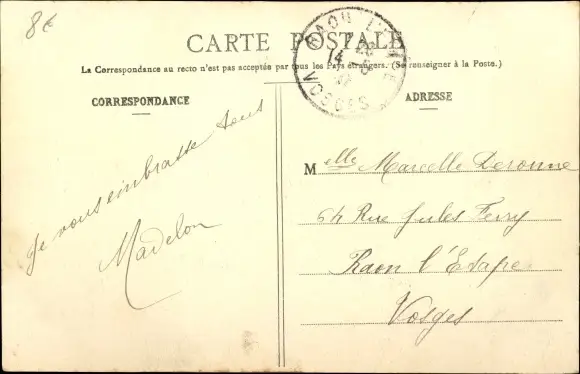 8€
CARTE POSTALE
La Correspondance au recto n'est pas acceptée par tous les Pays étrangers. (Se renseigner à la Poste.)
CORRESPONDANCE
Je vous embrasse tous
Madelon
RAON L'ETAPE
14
VOSGES
ADRESSE
Melle Marcelle Deronne
64 Rue Jules Ferry
Raon l'Etape
Vosges